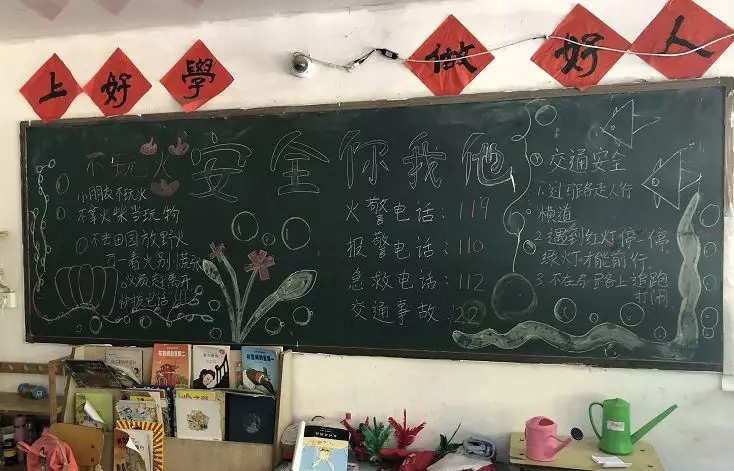 上好學
做好人
安全你我他
不玩火
小朋友不玩火
不拿火柴当玩物
不去田园放野火
万一看火别慌张
快拨电话119
火警电话:119
报警电话:110
急救电话:112
交通事故:122
交通安全
1.过马路走人行
横道
2.遇到红灯停一停,
绿灯才能前行.
3.不在马路上追跑
打闹.